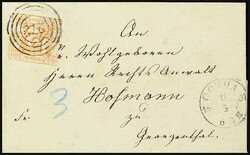 An
Sr. Wohlgeboren
Herrn Rechts Anwalt
Hofmann
zu
Georgenthal.
Fr.
3
GOTHA